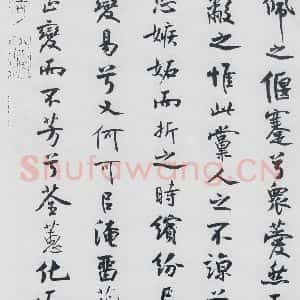 佩之偃蹇兮衆薆然
蔽之惟此黨人之不諒
恐嫉妬而折之時繽紛
變易兮又何可㠯淹畱
芷變而不芳兮荃蕙化
Shufawang.CN